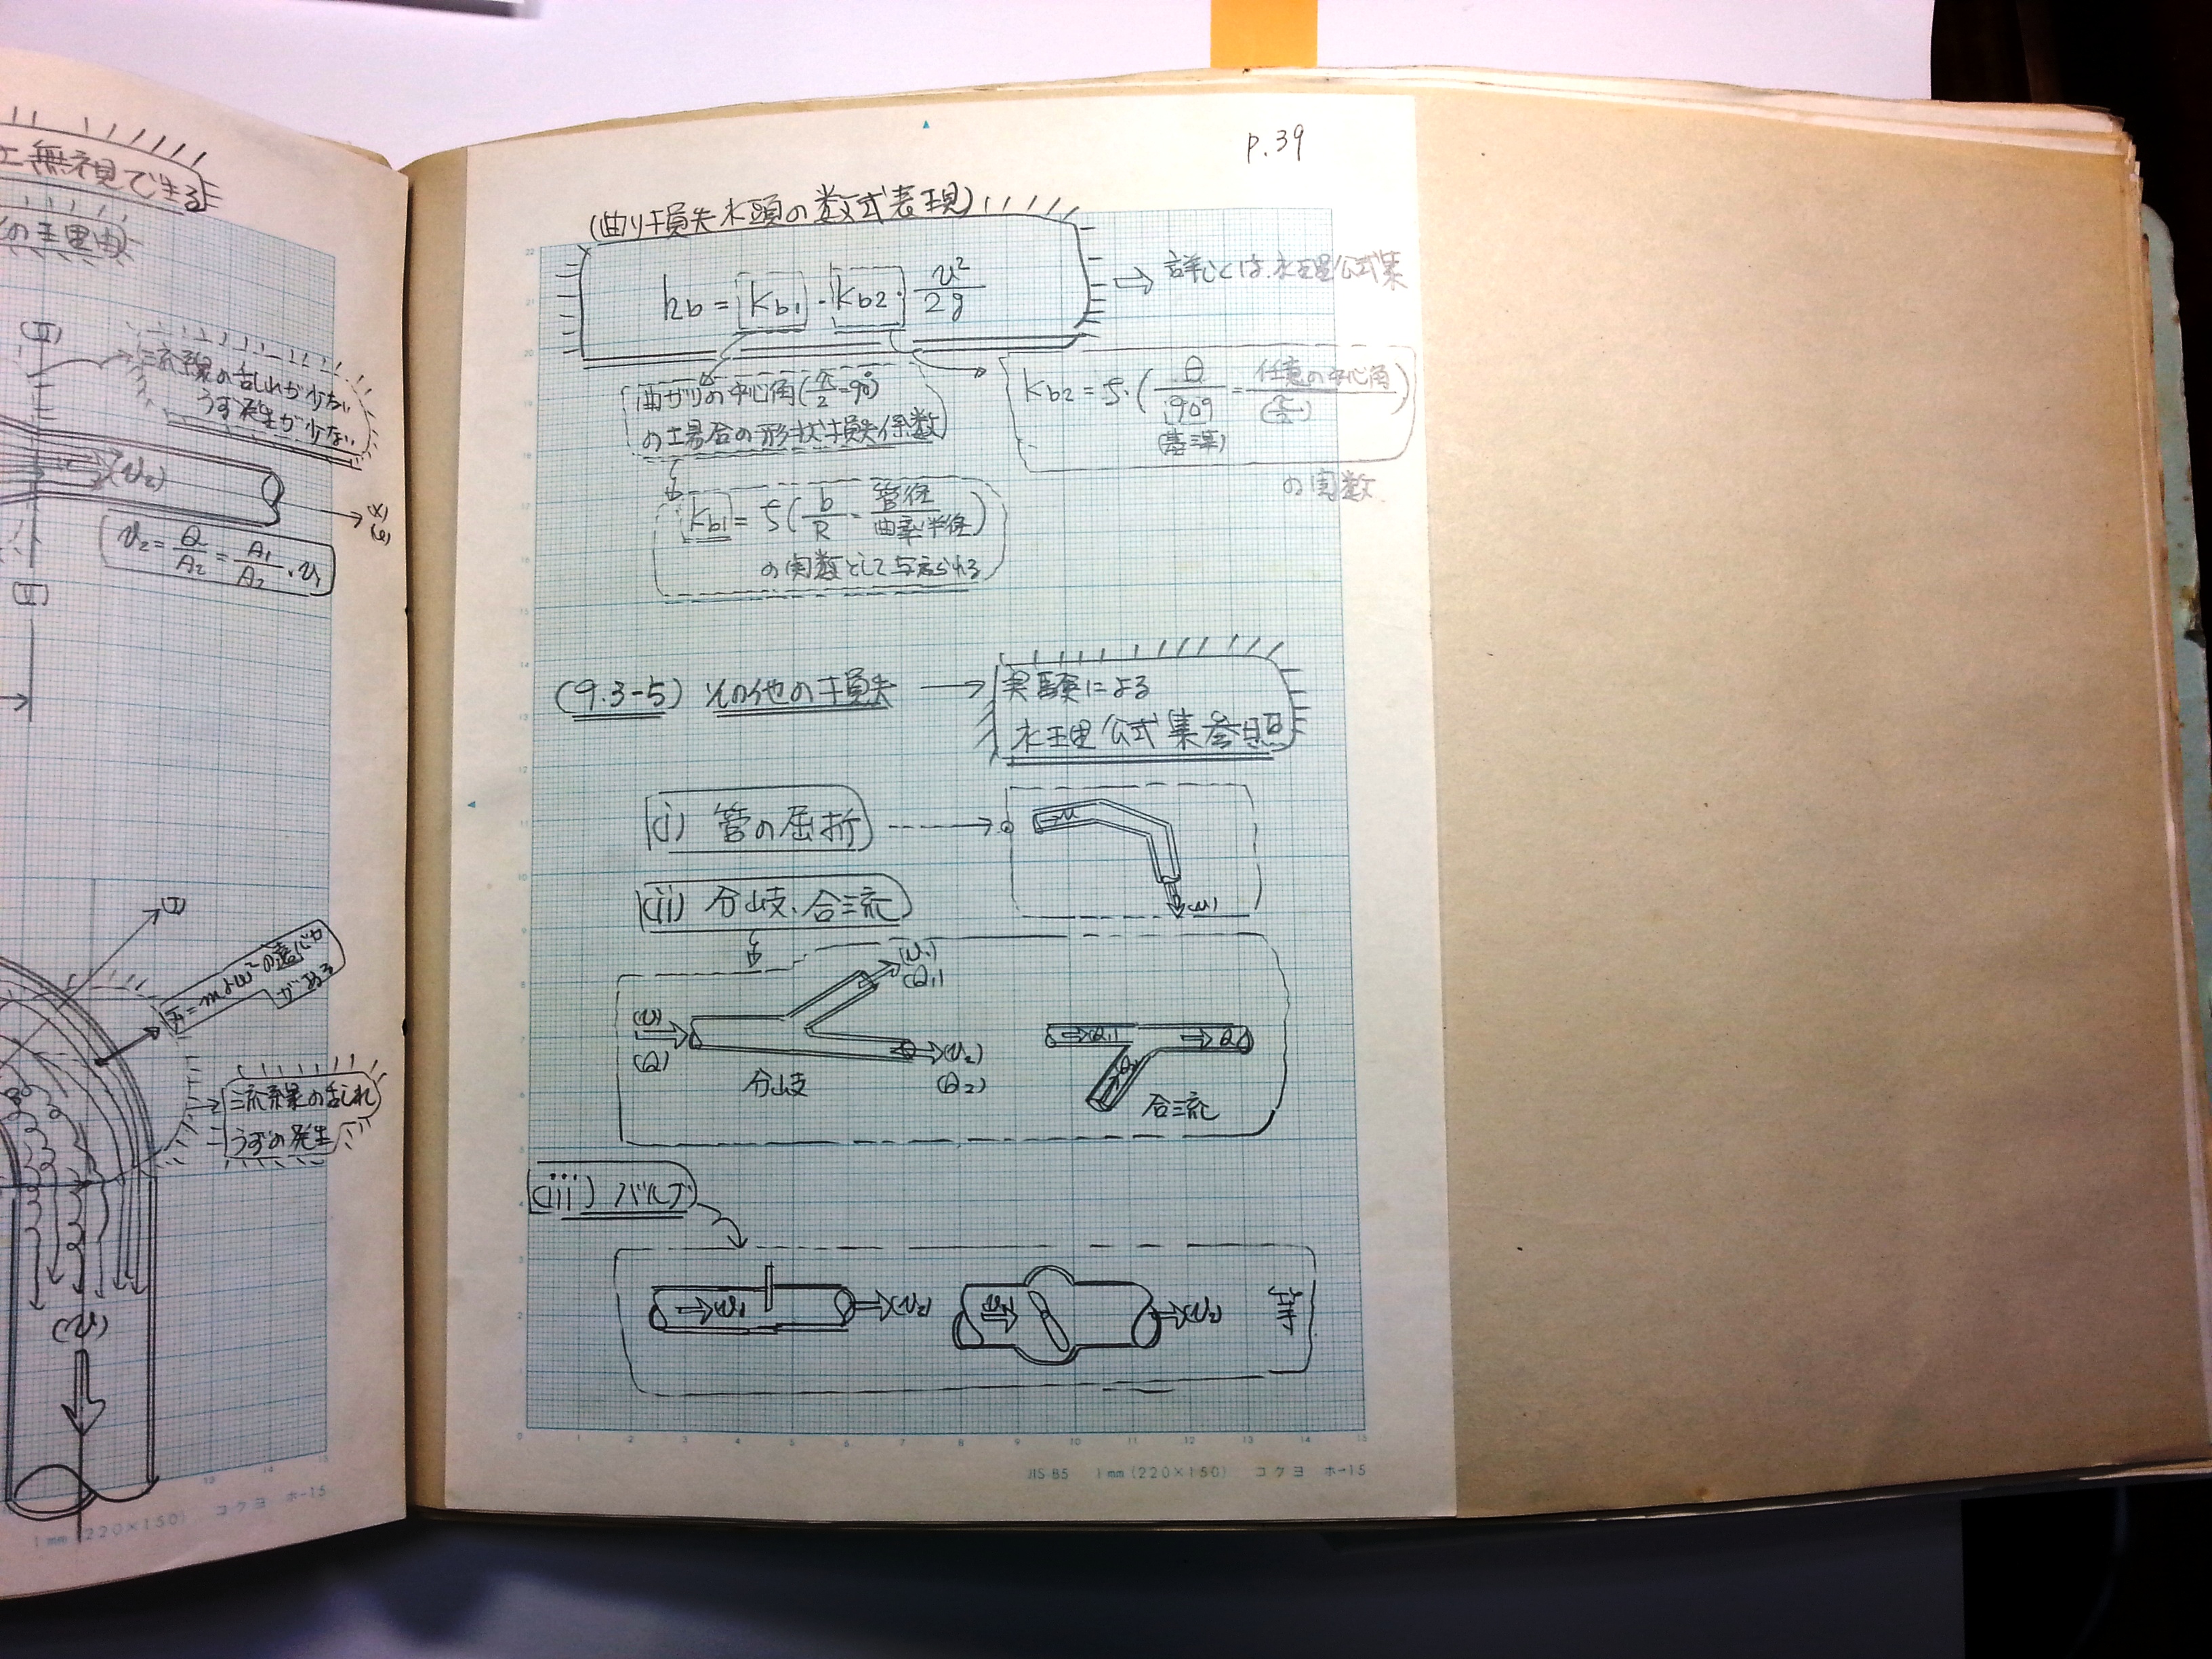 無視できる
の主理由
(II)
流線の乱れが少ない
うず発生が少ない
(v2)
(x)
v2 = Q/A2 = A1/A2 · v1
(II)
(I)
F = mrω²の遠心力
がある
流線の乱れ
うずの発生
(v)
1mm (220×150) コクヨ ホ-15
p.39
(曲り損失水頭の数式表現)
hb = Kb1 · Kb2 · v²/2g
⇒ 詳しくは、水理公式集
曲がりの中心角(π/2=90°)
の場合の形状損失係数
Kb2 = ζ·(θ/90° = 任意の中心角/(π/2))
(基準)
の関数
Kb1 = ζ(b/R = 管径/曲率半径)
の関数として与えられる
(9.3-5) その他の損失 → 実験による
水理公式集参照
(i) 管の屈折
v
(v)
(ii) 分岐、合流
(v1)
(Q1)
(v)
(Q)
(v2)
(Q2)
分岐
Q1
Q
Q2
合流
(iii) バルブ
v1
(v2)
v1
(v2)
等
JIS B5 1mm (220×150) コクヨ ホ-15